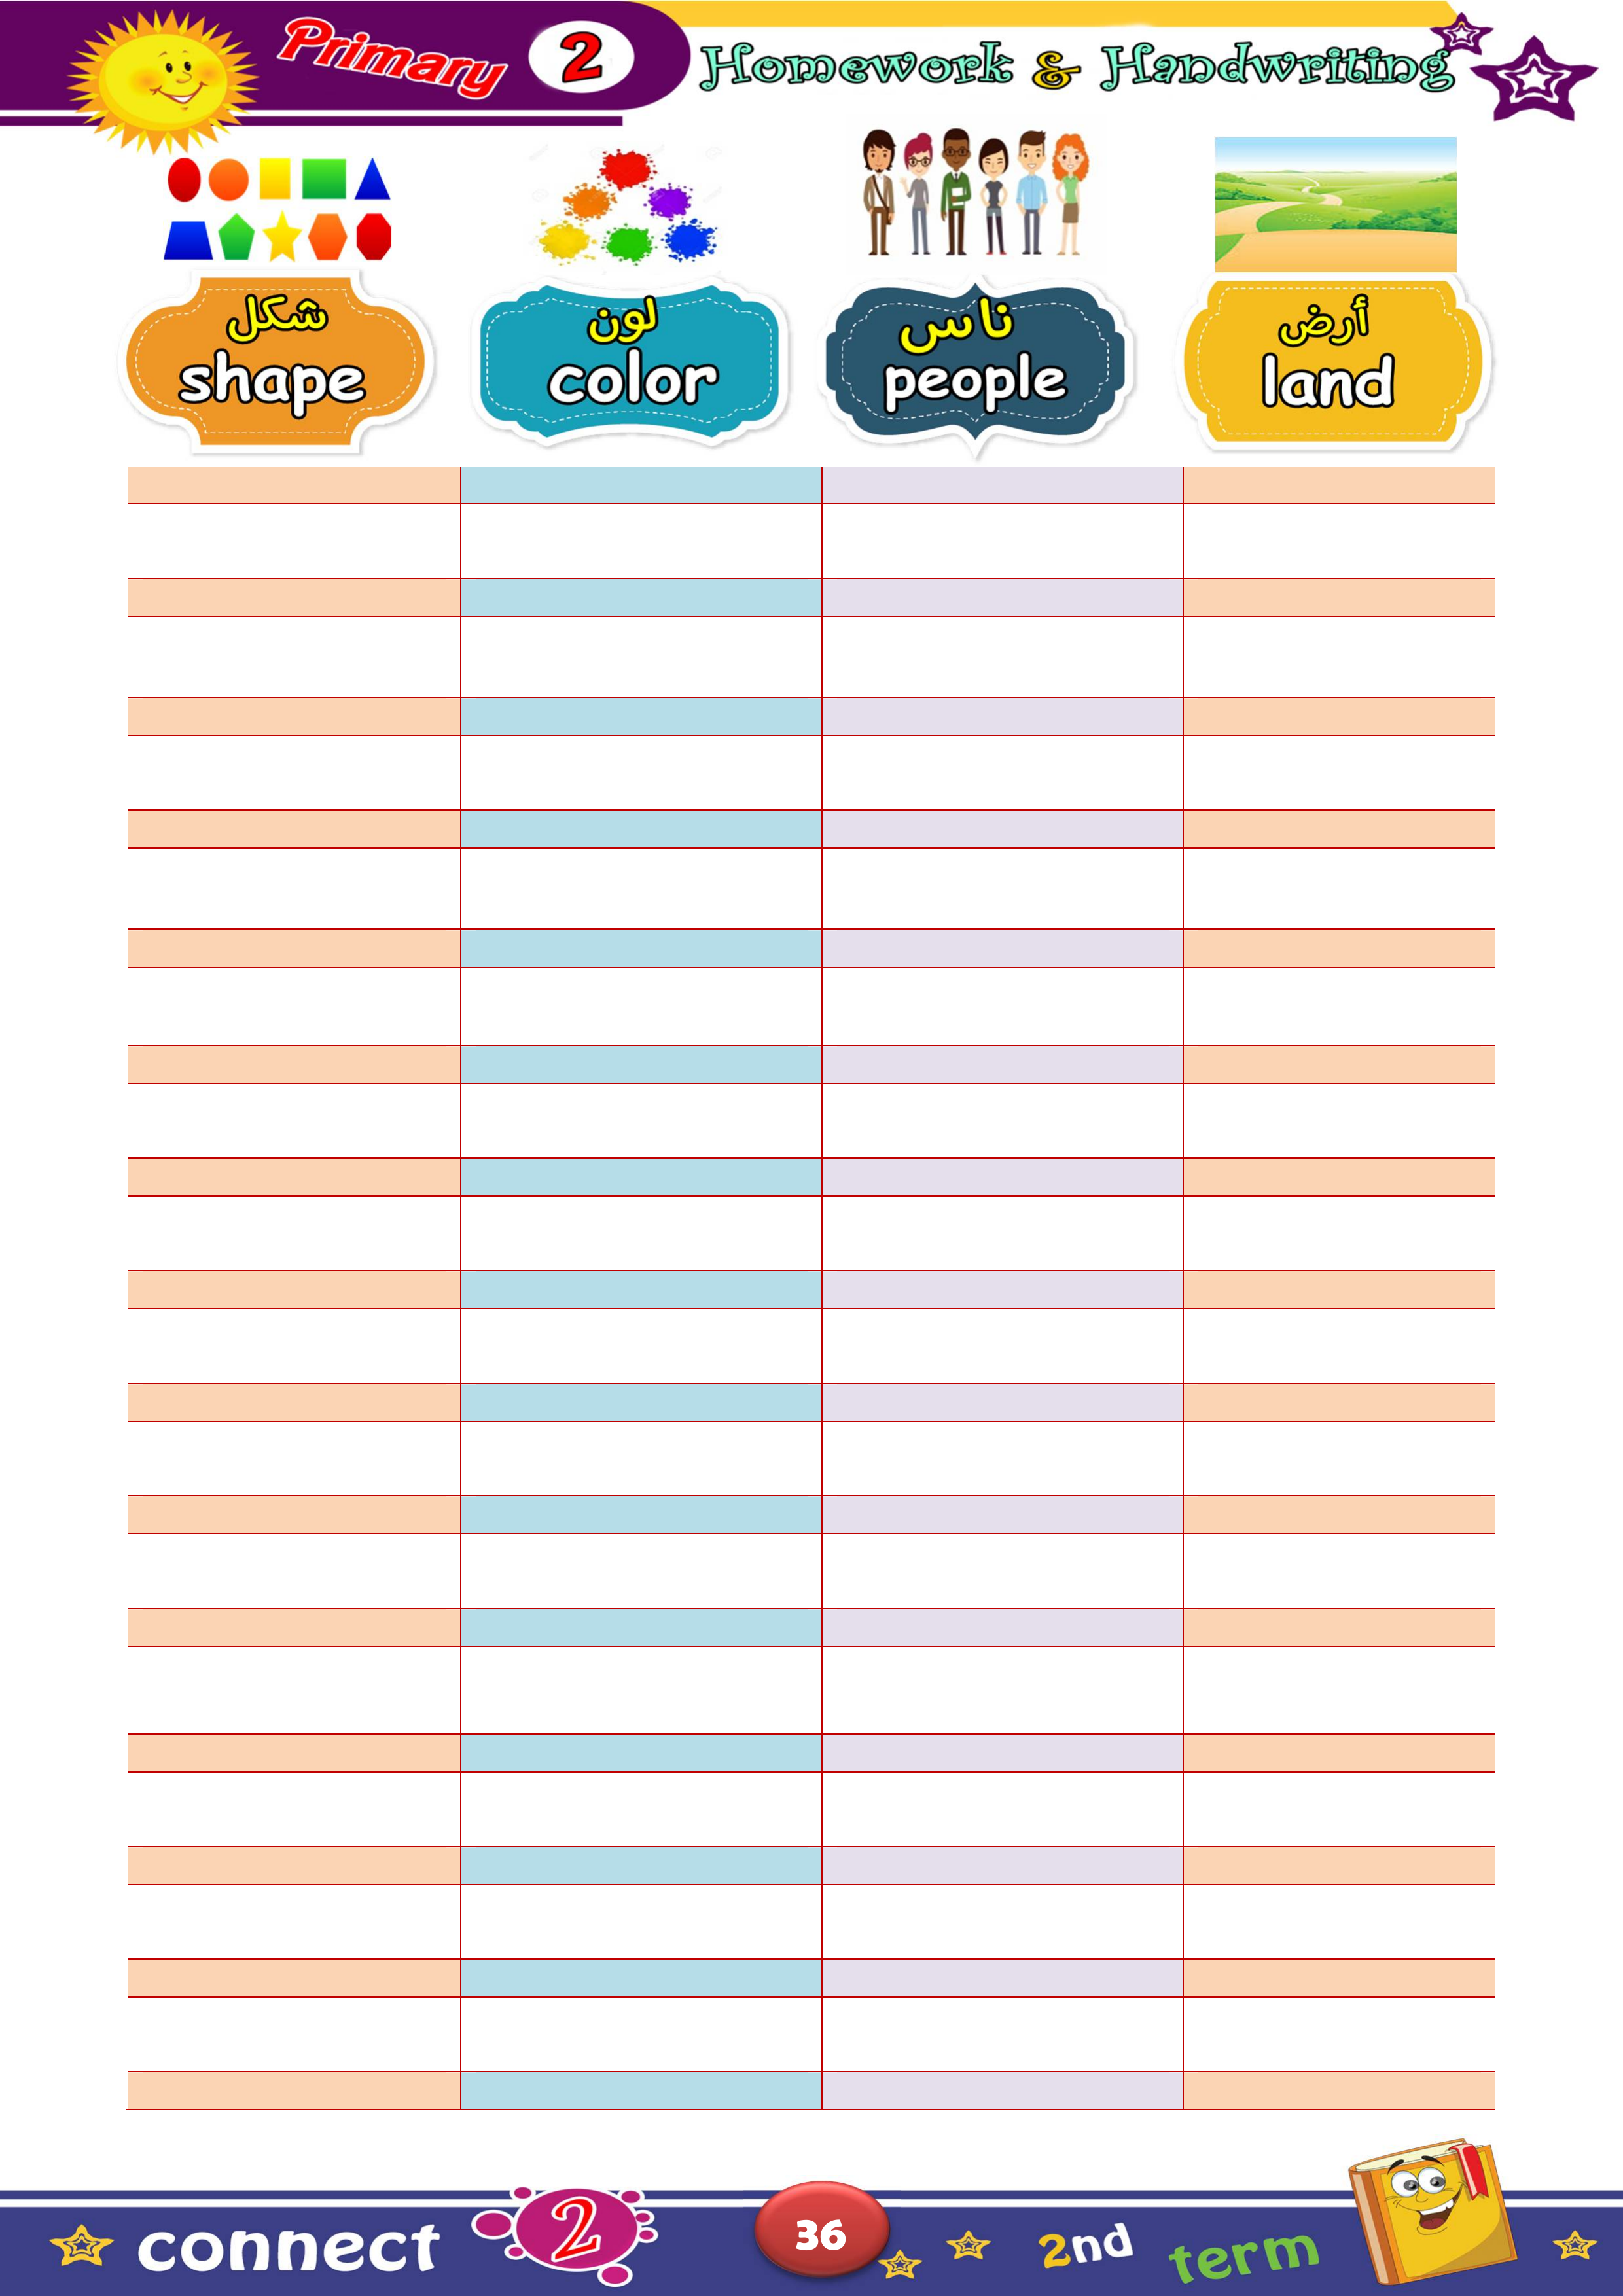 Primary 2 Homework & Handwriting
شكل
shape
لون
color
ناس
people
أرض
land
connect 2 36 2nd term